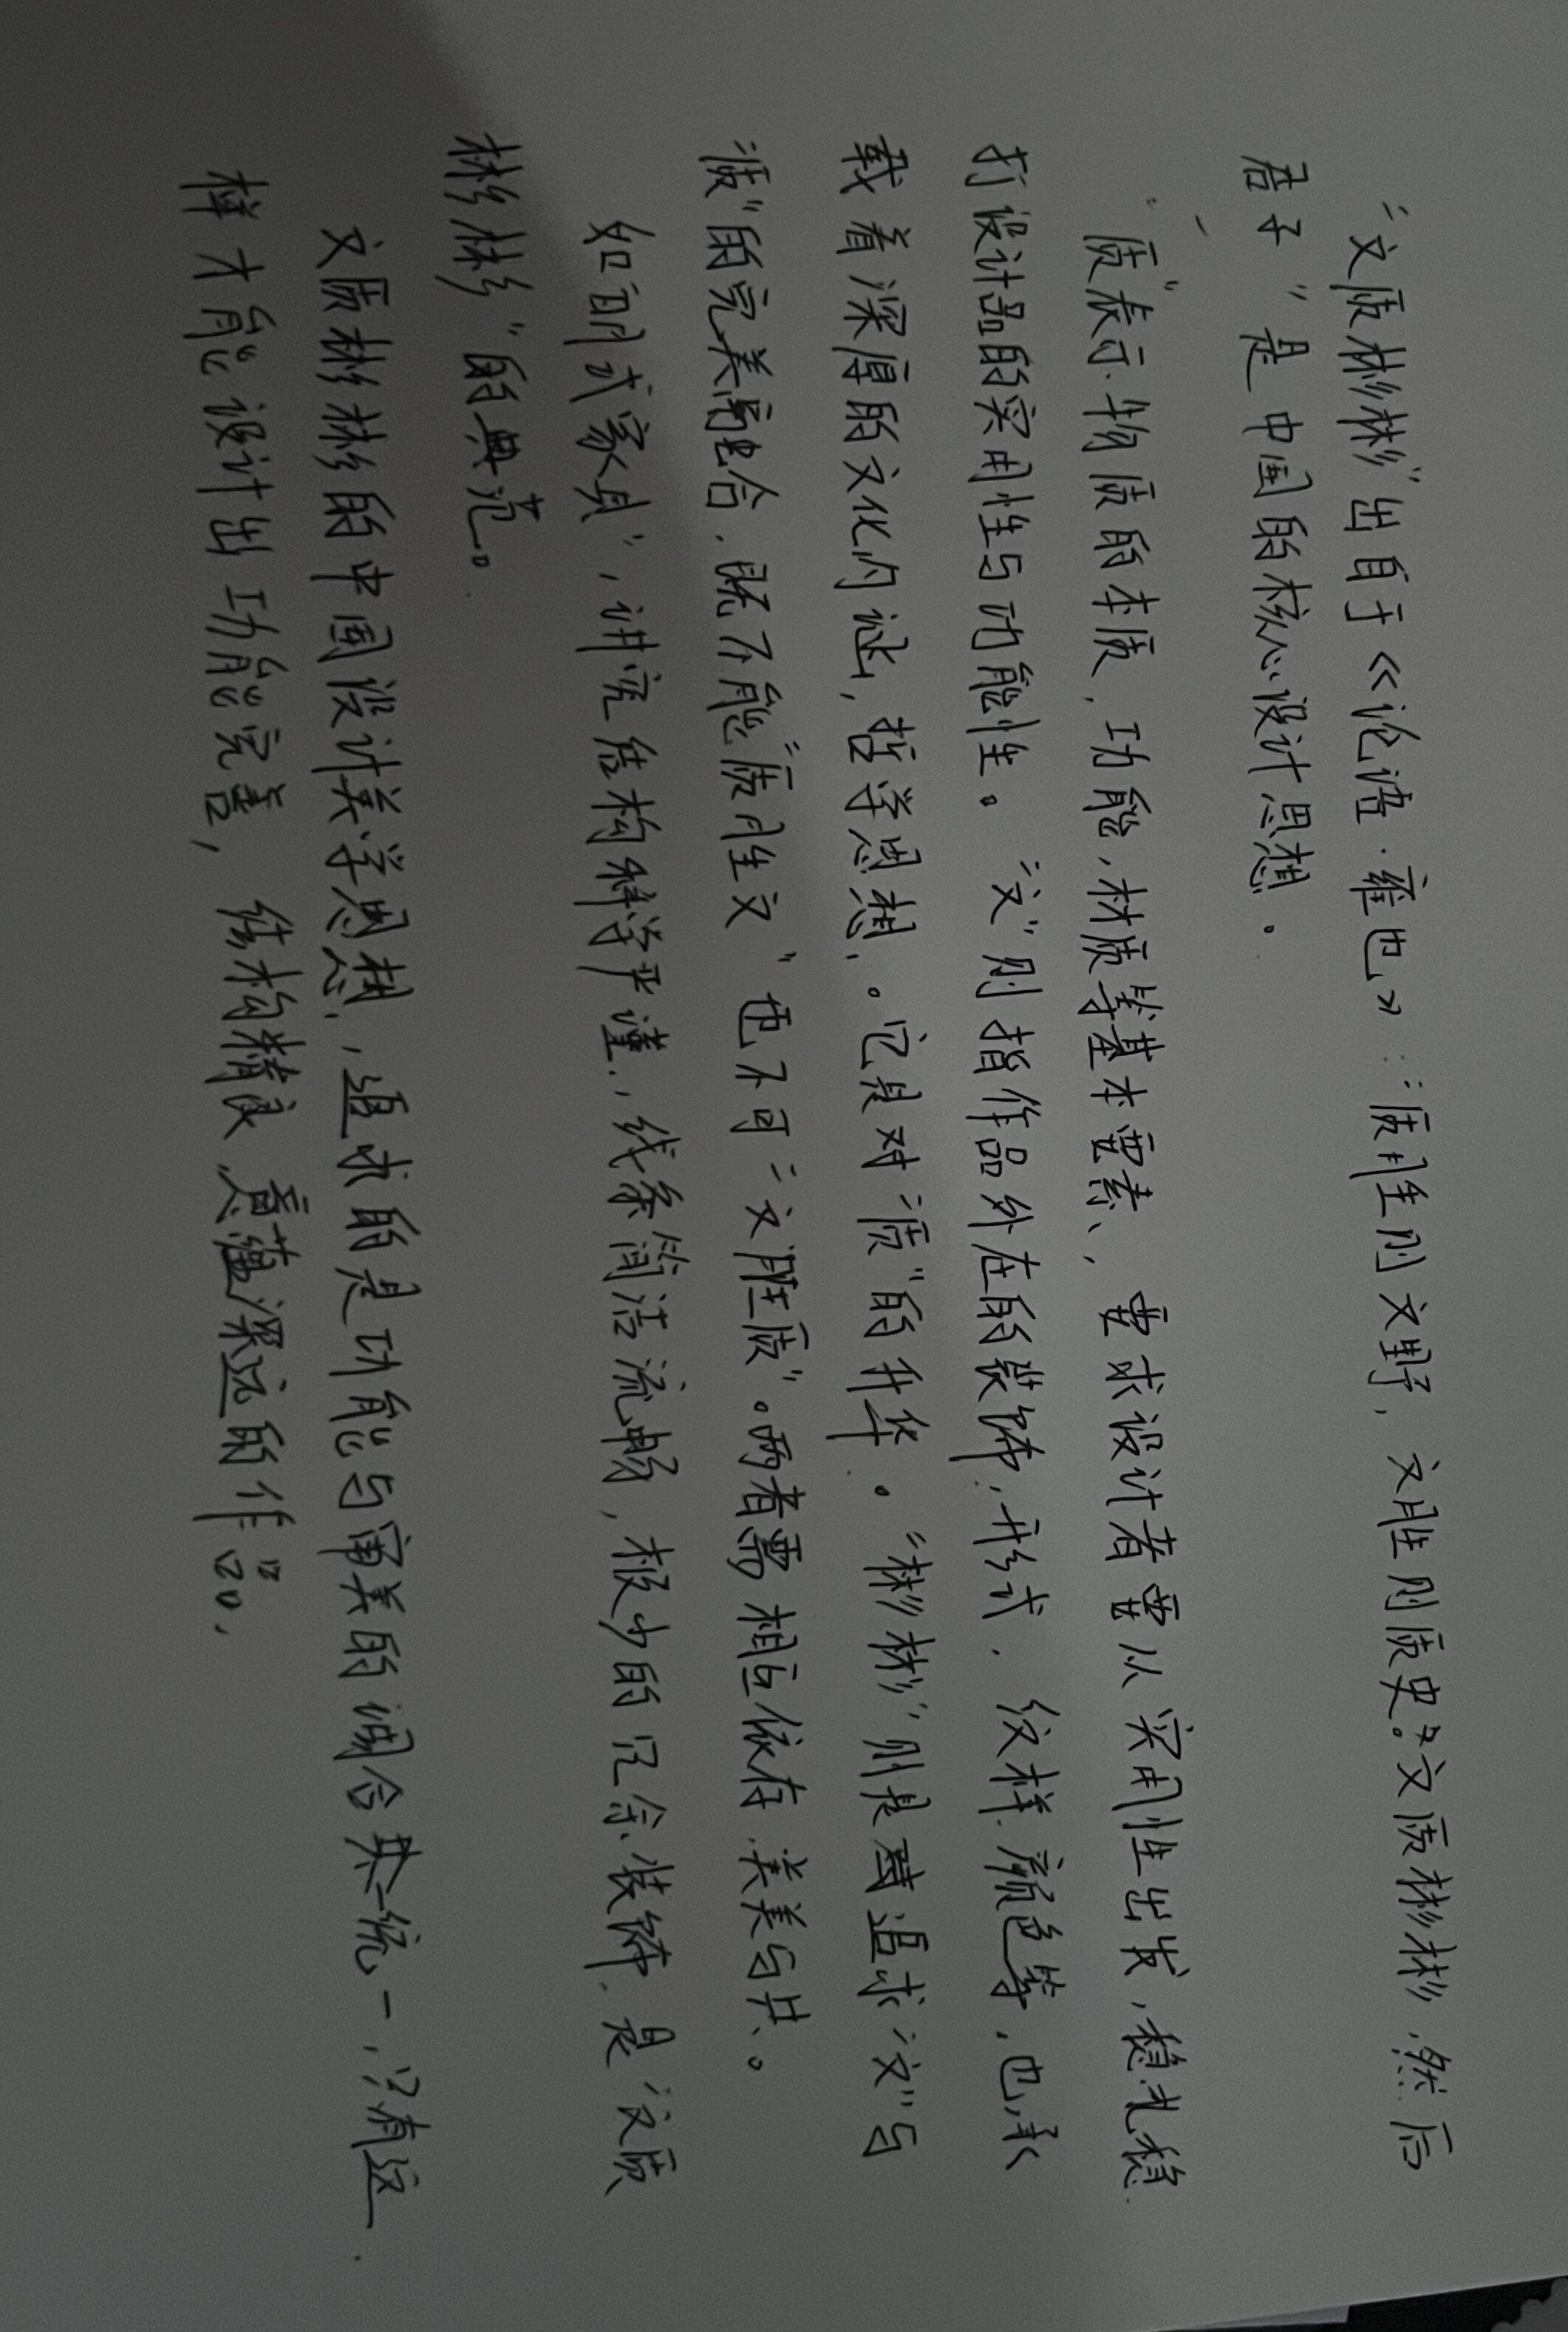 “文质彬彬”出自于《论语·雍也》：“质胜则文野，文胜则质史。文质彬彬，然后
君子”是中国的核心设计思想。
“质”表示物质的本质，功能，材质等基本要素、要求设计者要从实用性出发，稳扎稳
打设计品的实用性与功能性。“文”则指作品外在的装饰，形式，纹样，颜色等，也承
载着深厚的文化内涵，哲学思想。它是对“质”的升华。“彬彬”则是对追求“文”与
“质”的完美融合，既不能“质胜文”也不可“文胜质”。两者需相互依存，美美与共。
如“明式家具”，讲究结构科学严谨，线条简洁流畅，极少的冗余装饰，是“文质
彬彬”的典范。
文质彬彬的中国设计美学思想，追求的是功能与审美的调合共统一，只有这
样才能设计出功能完善，结构精良，意蕴深远的作品。